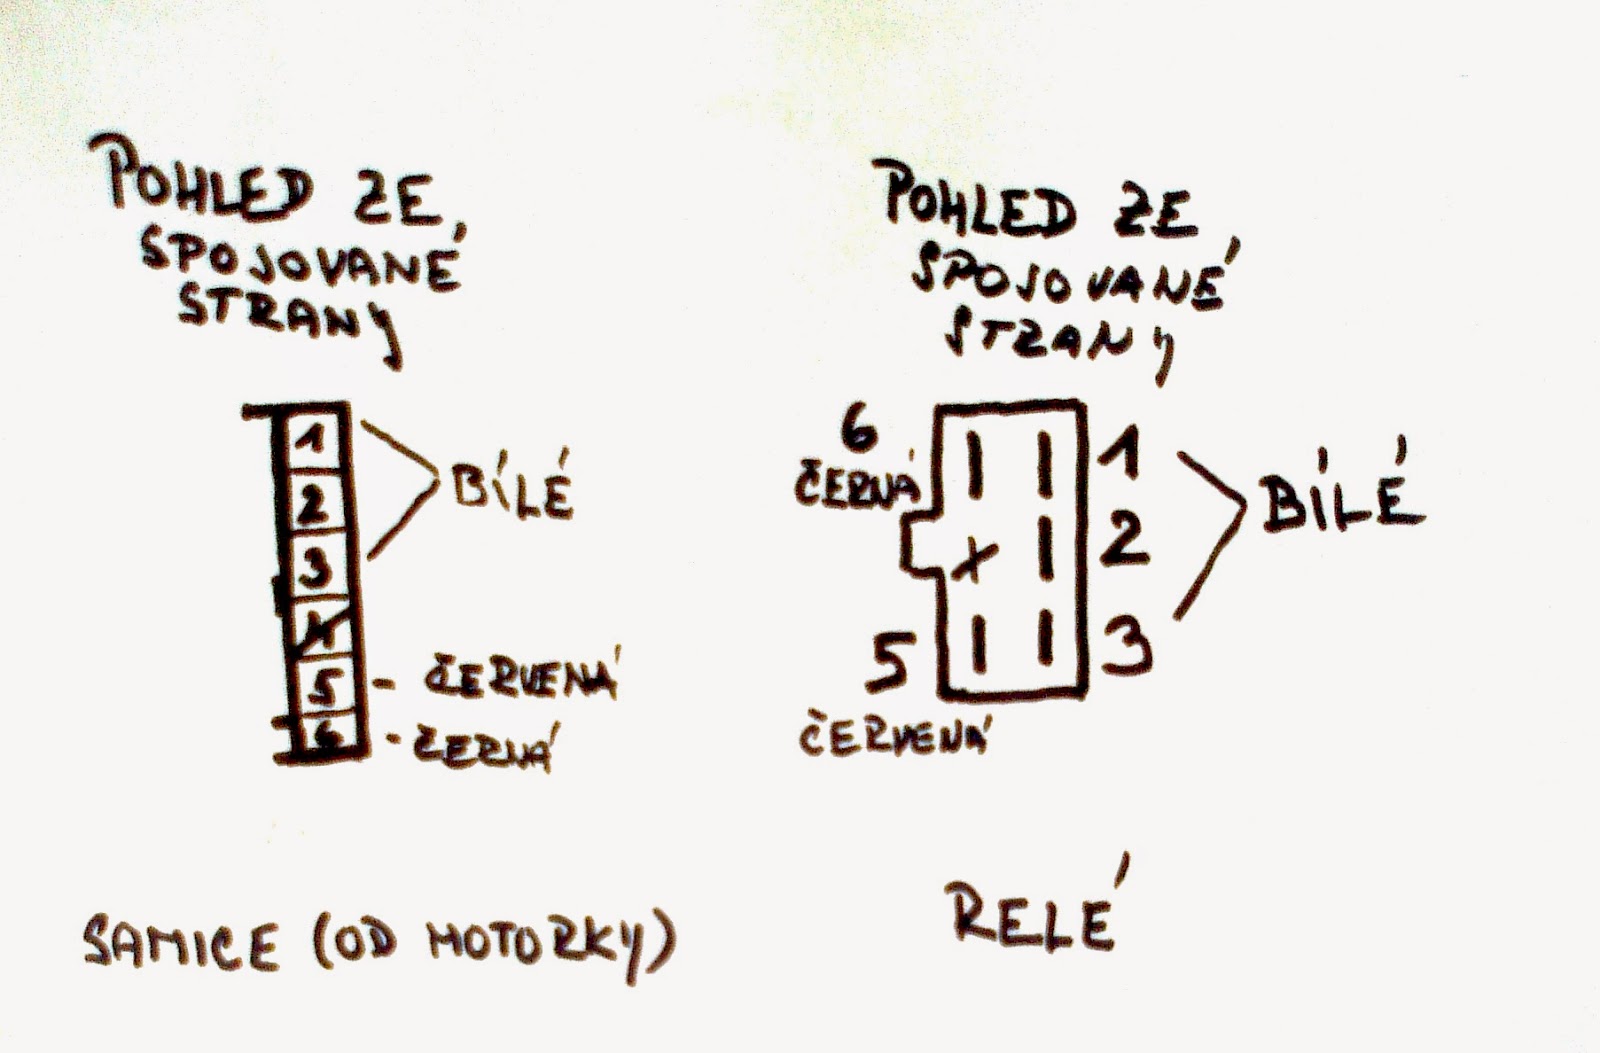 POHLED ZE
SPOJOVANÉ
STRANY
1
2
3
4
5
6
BÍLÉ
- ČERVENÁ
- ČERNÁ
SAMICE (OD MOTORKY)
POHLED ZE
SPOJOVANÉ
STRANY
6
ČERNÁ
1
2
3
X
BÍLÉ
5
ČERVENÁ
RELÉ